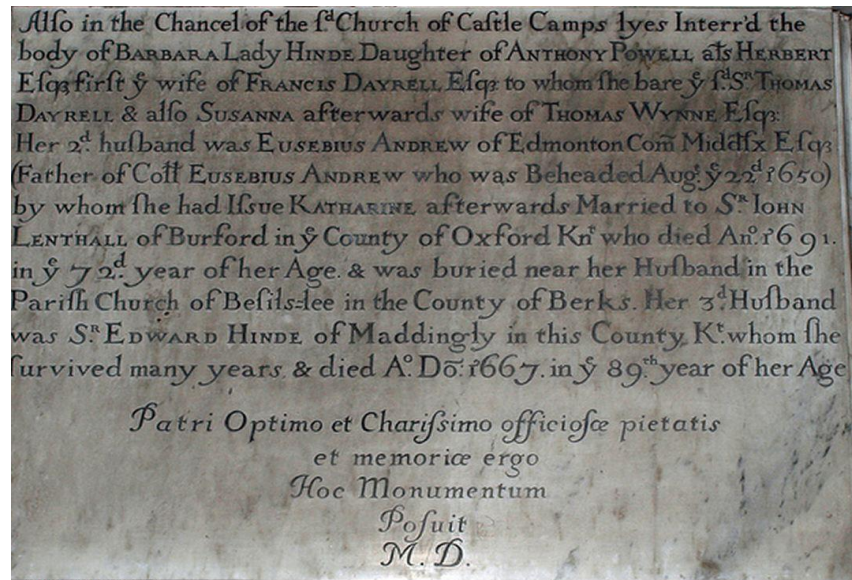 Alſo in the Chancel of the ſᵈ Church of Caſtle Camps lyes Interr'd the
body of BARBARA Lady HINDE Daughter of ANTHONY POWELL ats HERBERT
Eſqȝ firſt yͤ wife of FRANCIS DAYRELL Eſqȝ: to whom ſhe bare yͤ ſᵈ Sᴿ THOMAS
DAYRELL & alſo SUSANNA afterwards wife of THOMAS WYNNE Eſqȝ:
Her 2ᵈ. huſband was EUSEBIUS ANDREW of Edmonton Com̃ Middſx Eſqȝ
(Father of Coll EUSEBIUS ANDREW who was Beheaded Augᵗ. yͤ 22ᵈ 1650)
by whom ſhe had Iſsue KATHARINE afterwards Married to Sᴿ. IOHN
LENTHALL of Burford in yͤ County of Oxford Knᵗ who died Anᵒ. 1691.
in yͤ 72ᵈ. year of her Age. & was buried near her Huſband in the
Pariſh Church of Beſils-lee in the County of Berks. Her 3ᵈ. Huſband
was Sᴿ. EDWARD HINDE of Maddingly in this County, Kᵗ. whom ſhe
ſurvived many years & died Aᵒ. Dō. 1667. in yͤ 89ᵗʰ. year of her Age
Patri Optimo et Chariſsimo officioſæ pietatis
et memoriæ ergo
Hoc Monumentum
Poſuit
M. D.